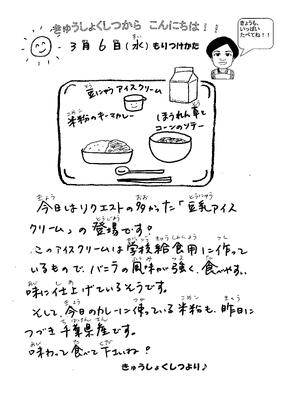 きゅうしょくしつから こんにちは！！
きょうも、
いっぱい
たべてね！！
3月6日(水)もりつけかた
豆にゅうアイスクリーム
米粉のキーマカレー
ほうれん草と
コーンのソテー
今日はリクエストの多かった「豆乳アイス
クリーム」の登場です！
このアイスクリームは学校給食用に作って
いるもので、バニラの風味が強く、食べやすい
味に仕上げているそうです。
そして、今日のカレーに使っている米粉も、昨日に
つづき千葉県産です。
味わって食べて下さいね？
きゅうしょくしつより♪